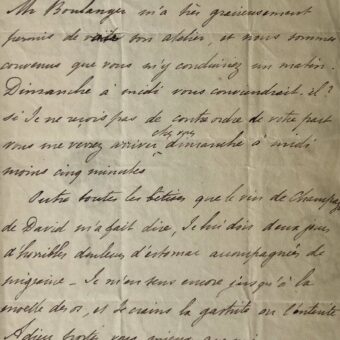 Mr Boulanger m'a très gracieusement
permis de voir son atelier, et nous sommes
convenus que vous m'y conduiriez un matin.
Dimanche à midi vous conviendrait-il?
si Je ne reçois pas de contre ordre de votre part
vous me verrez arriver chez vous dimanche à midi
moins cinq minutes
Outre toutes les bêtises que le vin de Champagne
de David m'a fait dire, Je lui dois deux jours
d'horribles douleurs d'estomac accompagnés de
migraine. Je m'en sens encore jusqu'à la
moelle des os, et Je crains la gastrite ou l'entérite
Adieu